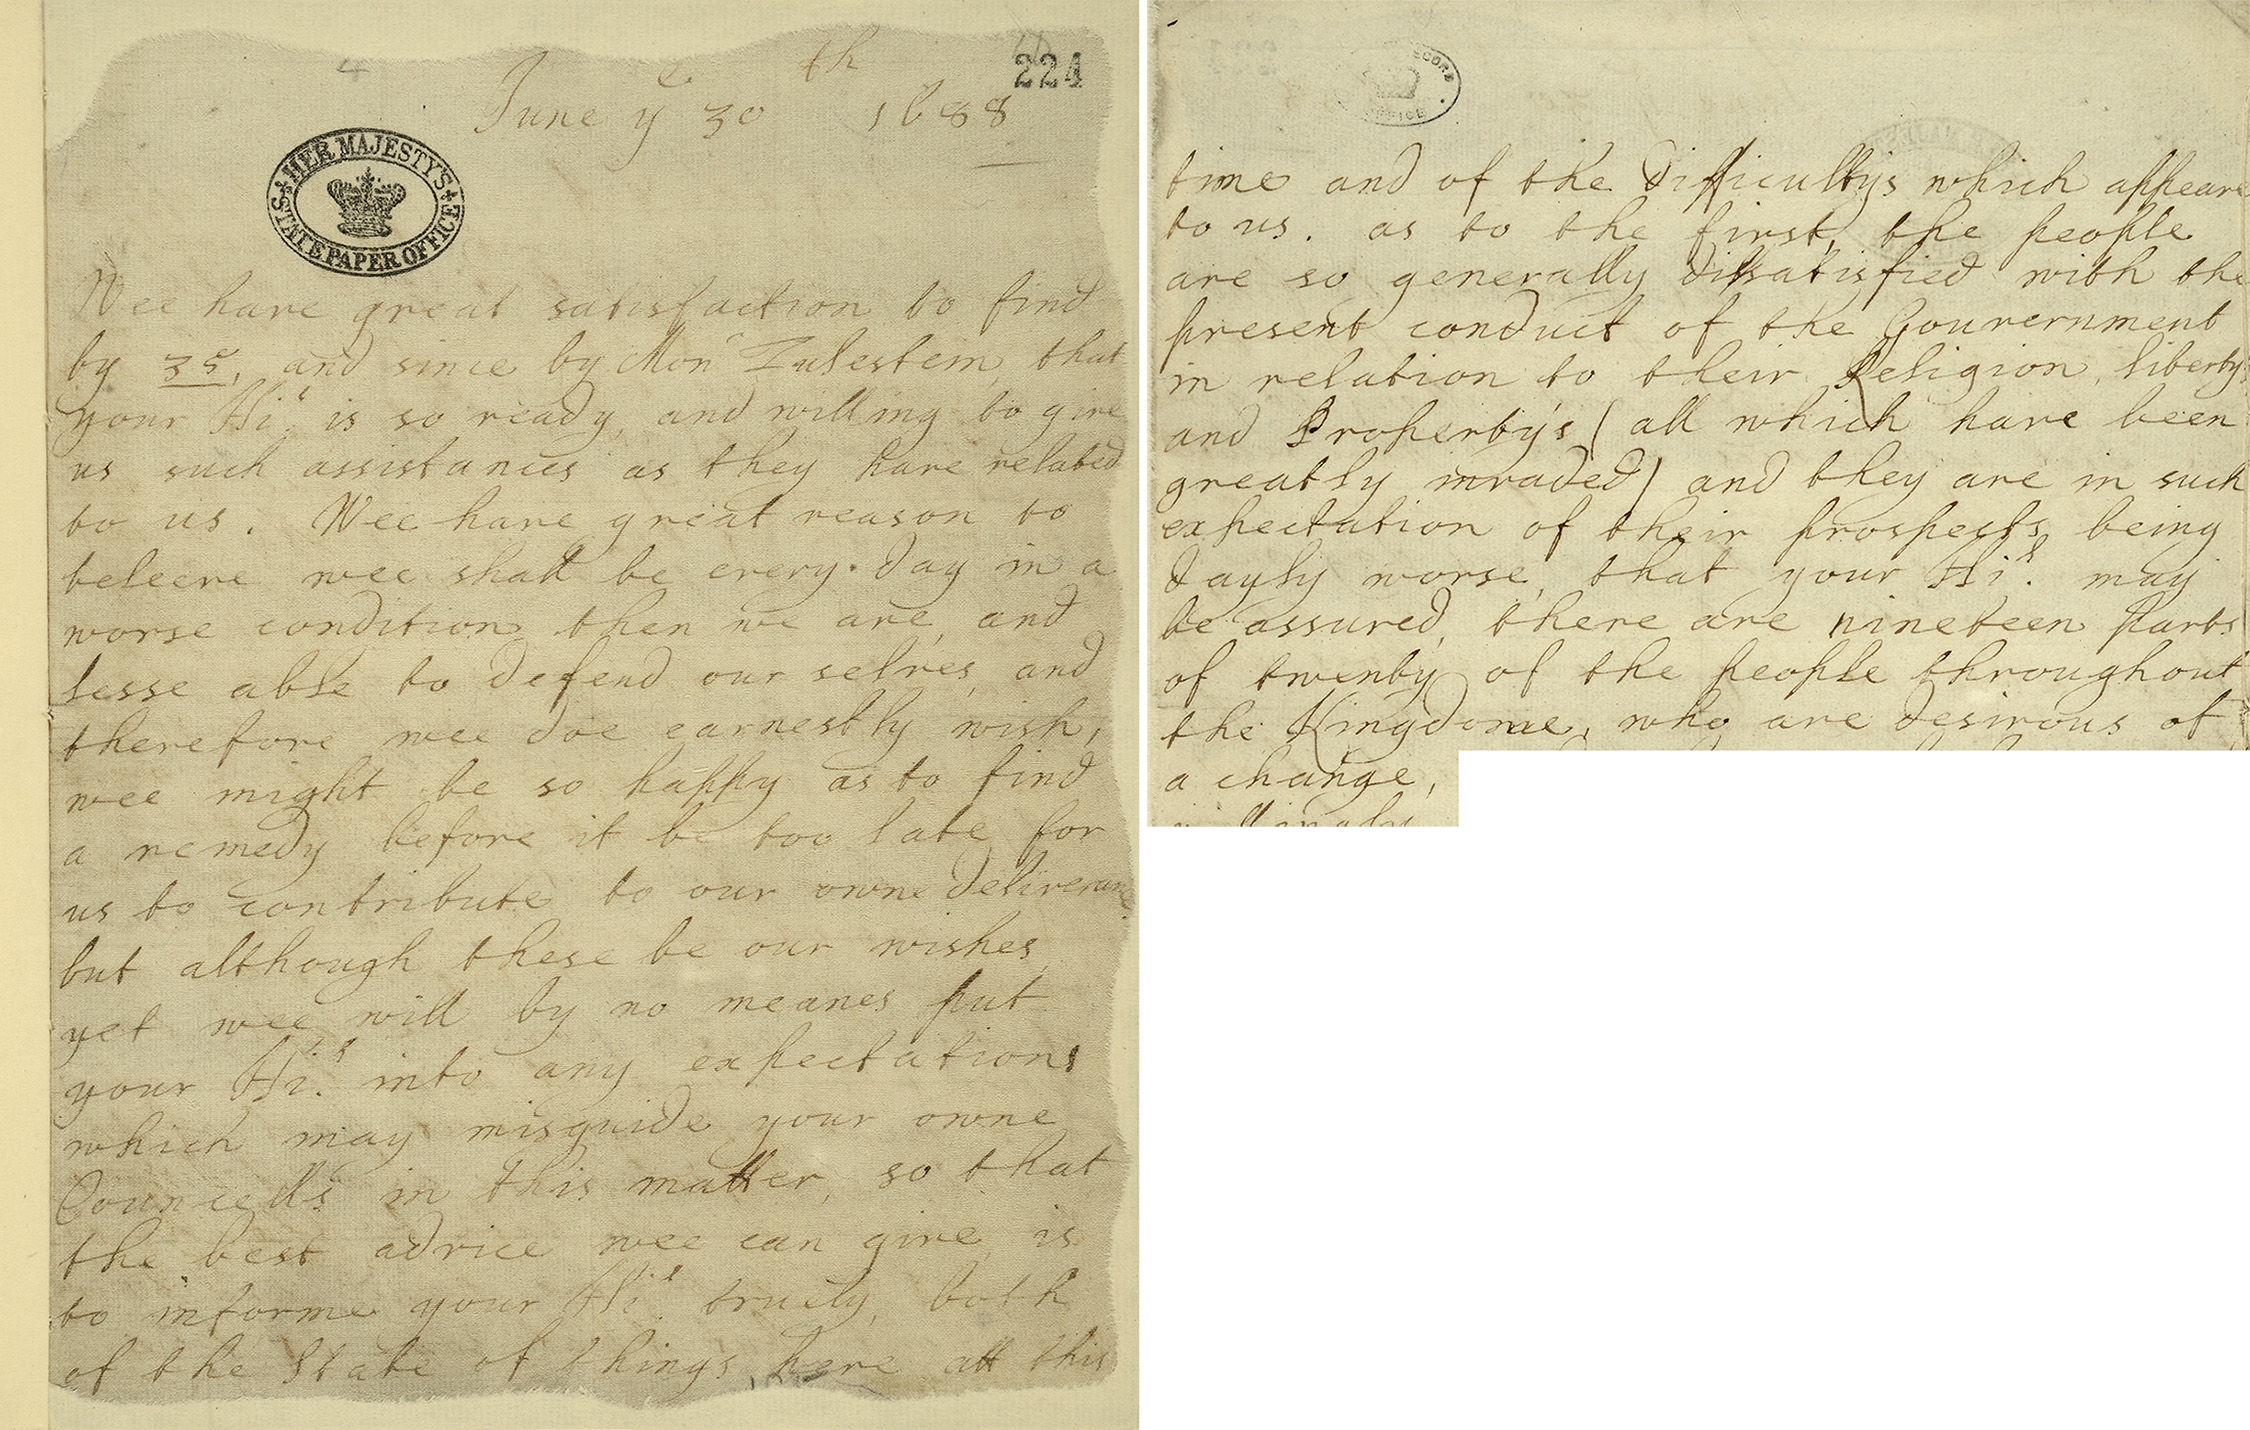 4
224
June yᵉ 30ᵗʰ 1688
HER MAJESTY'S STATE PAPER OFFICE
Wee have great satisfaction to find
by 35, and since by Monʳ Zulestein, that
your Hi.ˢ is so ready, and willing to give
us such assistances as they have related
to us. Wee have great reason to
beleeve wee shall be every day in a
worse condition then we are, and
lesse able to defend our selves, and
therefore wee doe earnestly wish,
wee might be so happy as to find
a remedy before it be too late for
us to contribute to our owne deliverance
but although these be our wishes,
yet wee will by no meanes put
your Hi.ˢ into any expectations
which may misguide your owne
Councells in this matter, so that
the best advice wee can give, is
to informe your Hi.ˢ truely, both
of the State of things here att this
RECORD OFFICE
time and of the Difficultys which appeare
to us. as to the first, the people
are so generally dissatisfied with the
present conduct of the Gouvernment
in relation to their Religion, liberty
and Property's (all which have been
greatly invaded) and they are in such
expectation of their prospects being
dayly worse, that your Hi.ˢ may
be assured, there are nineteen parts
of twenty of the people throughout
the Kingdome, who are desirous of
a change,